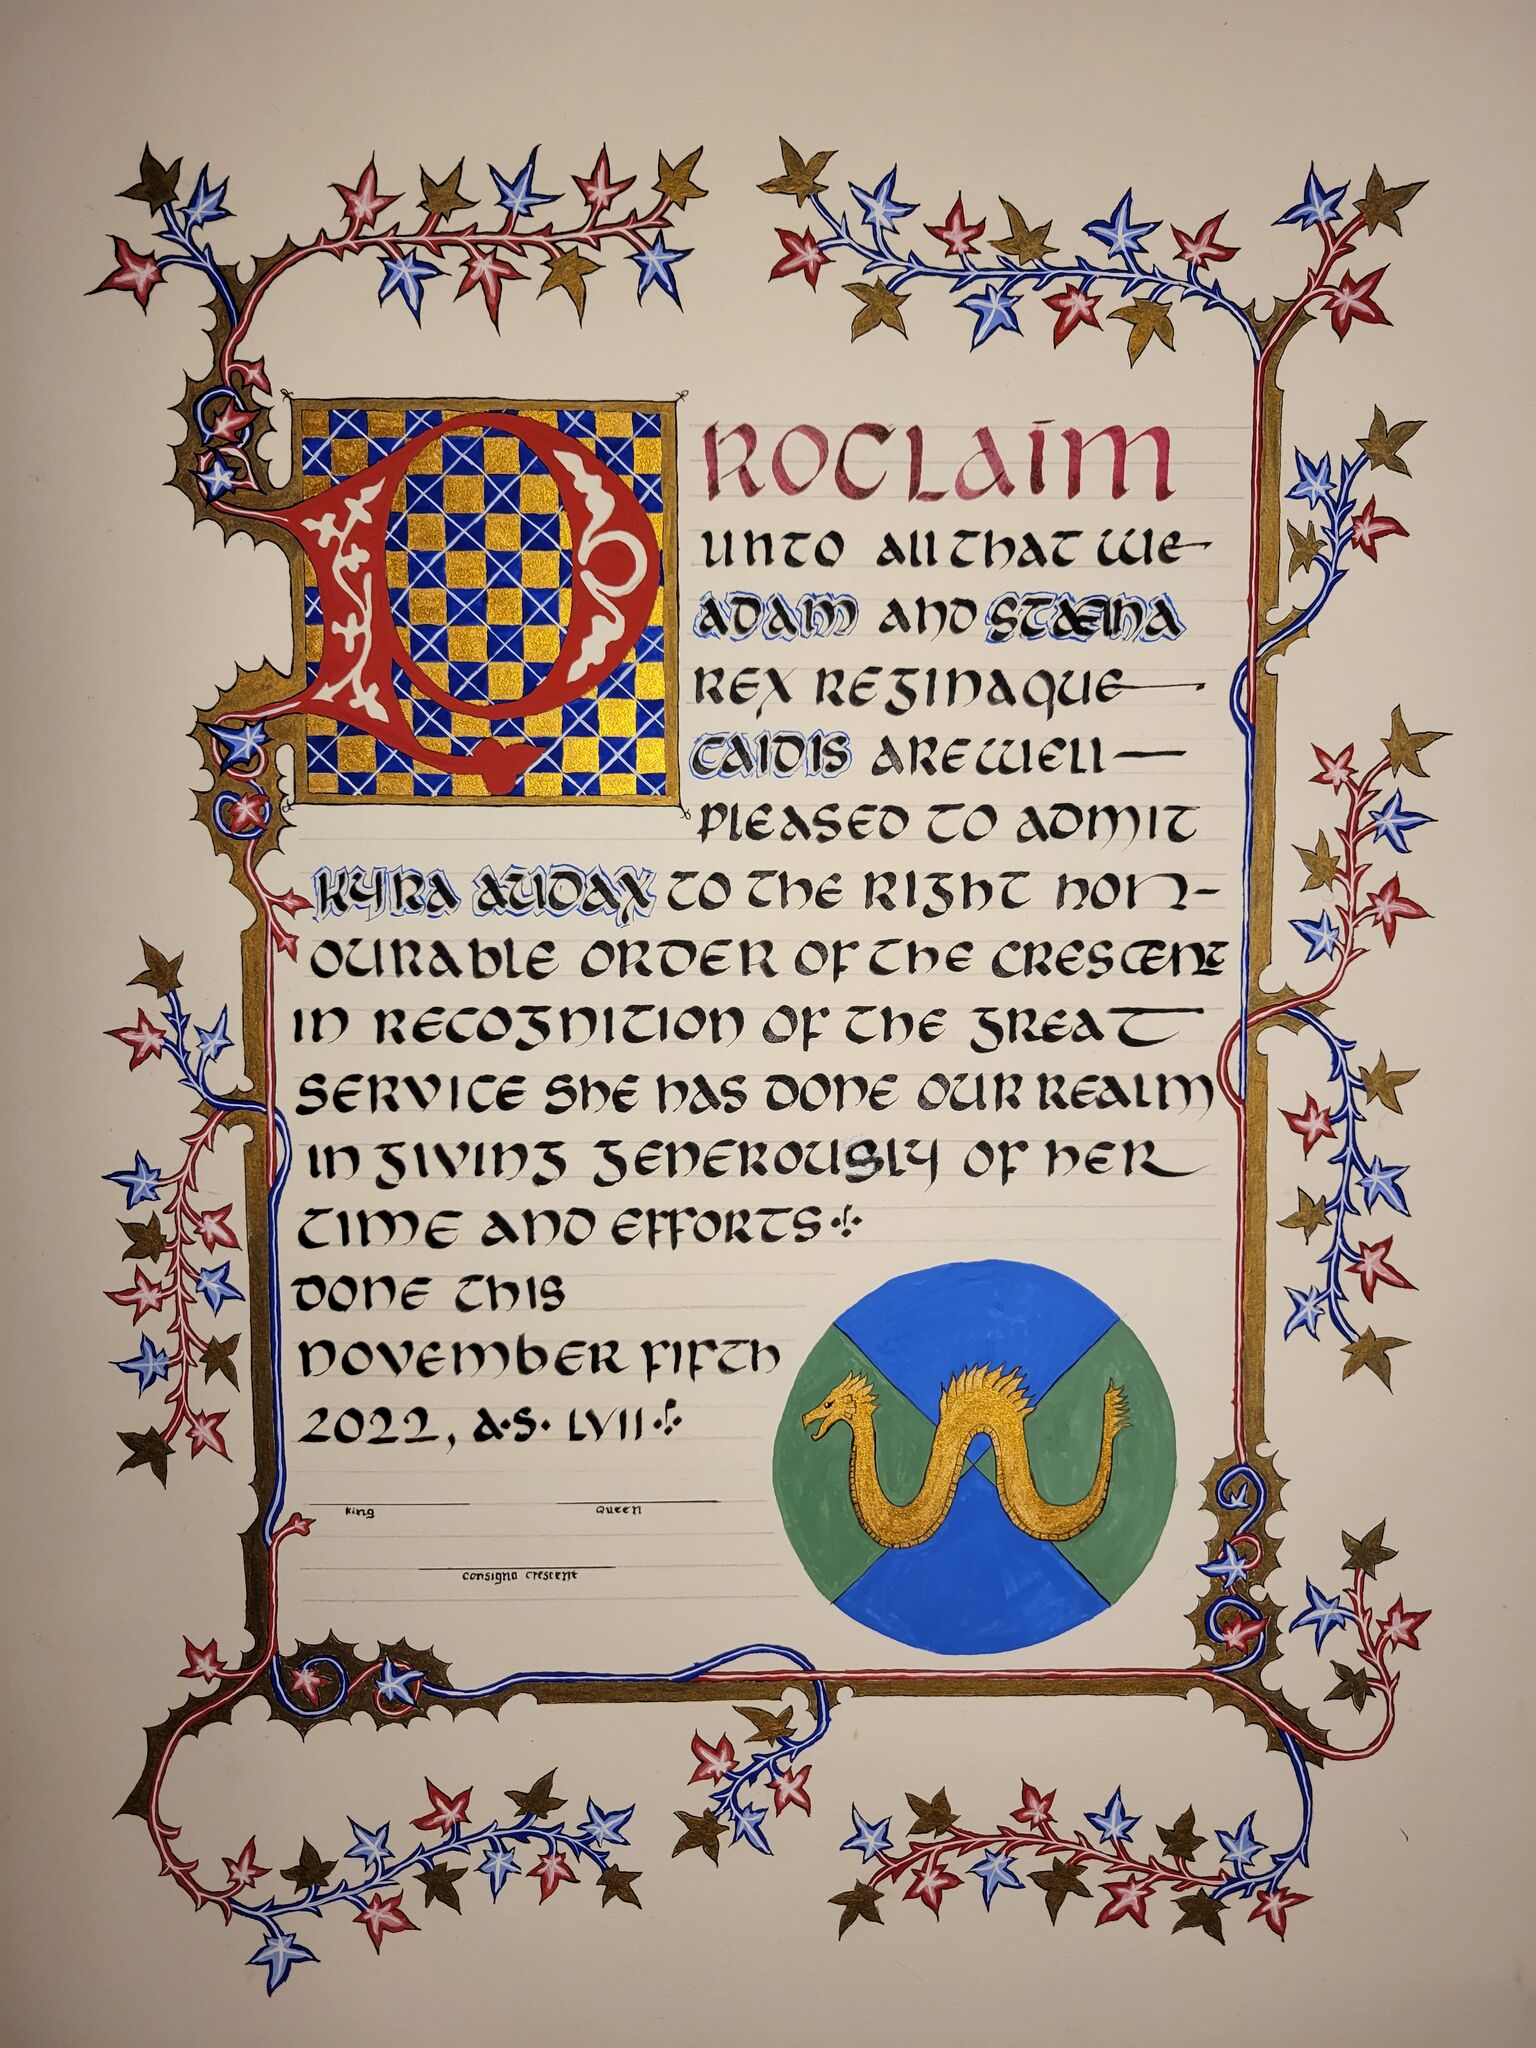 PROCLAIM
UNTO ALL THAT WE
ADAM AND STÆINA
REX REGINAQUE
CAIDIS ARE WELL
PLEASED TO ADMIT
KYRA AUDAX TO THE RIGHT HON-
OURABLE ORDER OF THE CRESCENT
IN RECOGNITION OF THE GREAT
SERVICE SHE HAS DONE OUR REALM
IN GIVING GENEROUSLY OF HER
TIME AND EFFORTS
DONE THIS
NOVEMBER FIFTH
2022, A·S· LVII
King Queen
Consigna Crescent